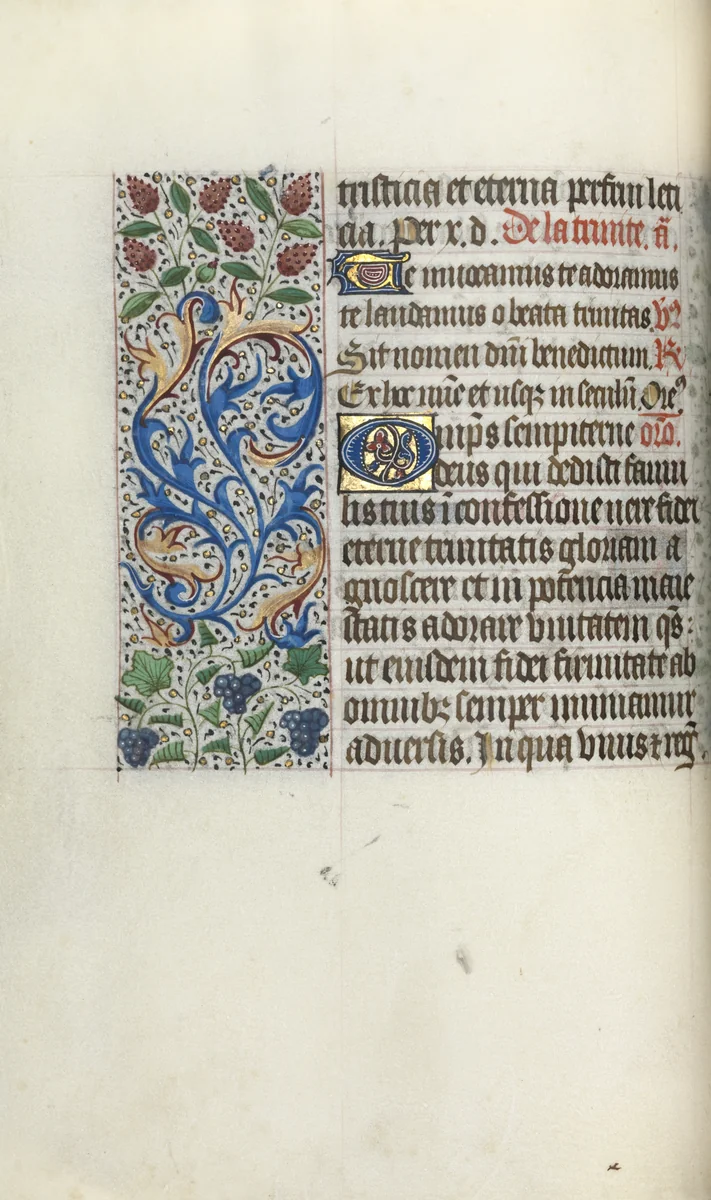 tristicia et eterna perfrui leti
cia. Per x.̃ d. De la trinite. ã.
Te inuocamus te adoramus
te laudamus o beata trinitas. V̾
Sit nomen dn̄i benedictum. R̾
Ex hoc nūc et usqꝫ in seculū. Ore᷒
Omīp̄s sempiterne oro̅.
deus qui dedisti famu
lis tuis ī confessione uere fidei
eterne trinitatis gloriam a
gnoscere et in potēncia maie
statis adorare vnitatem q̄s:
ut eiusdem fidei firmitate ab
omnibꝫ semper muniamur
aduersis. In qua viuis ⁊ reg̃.